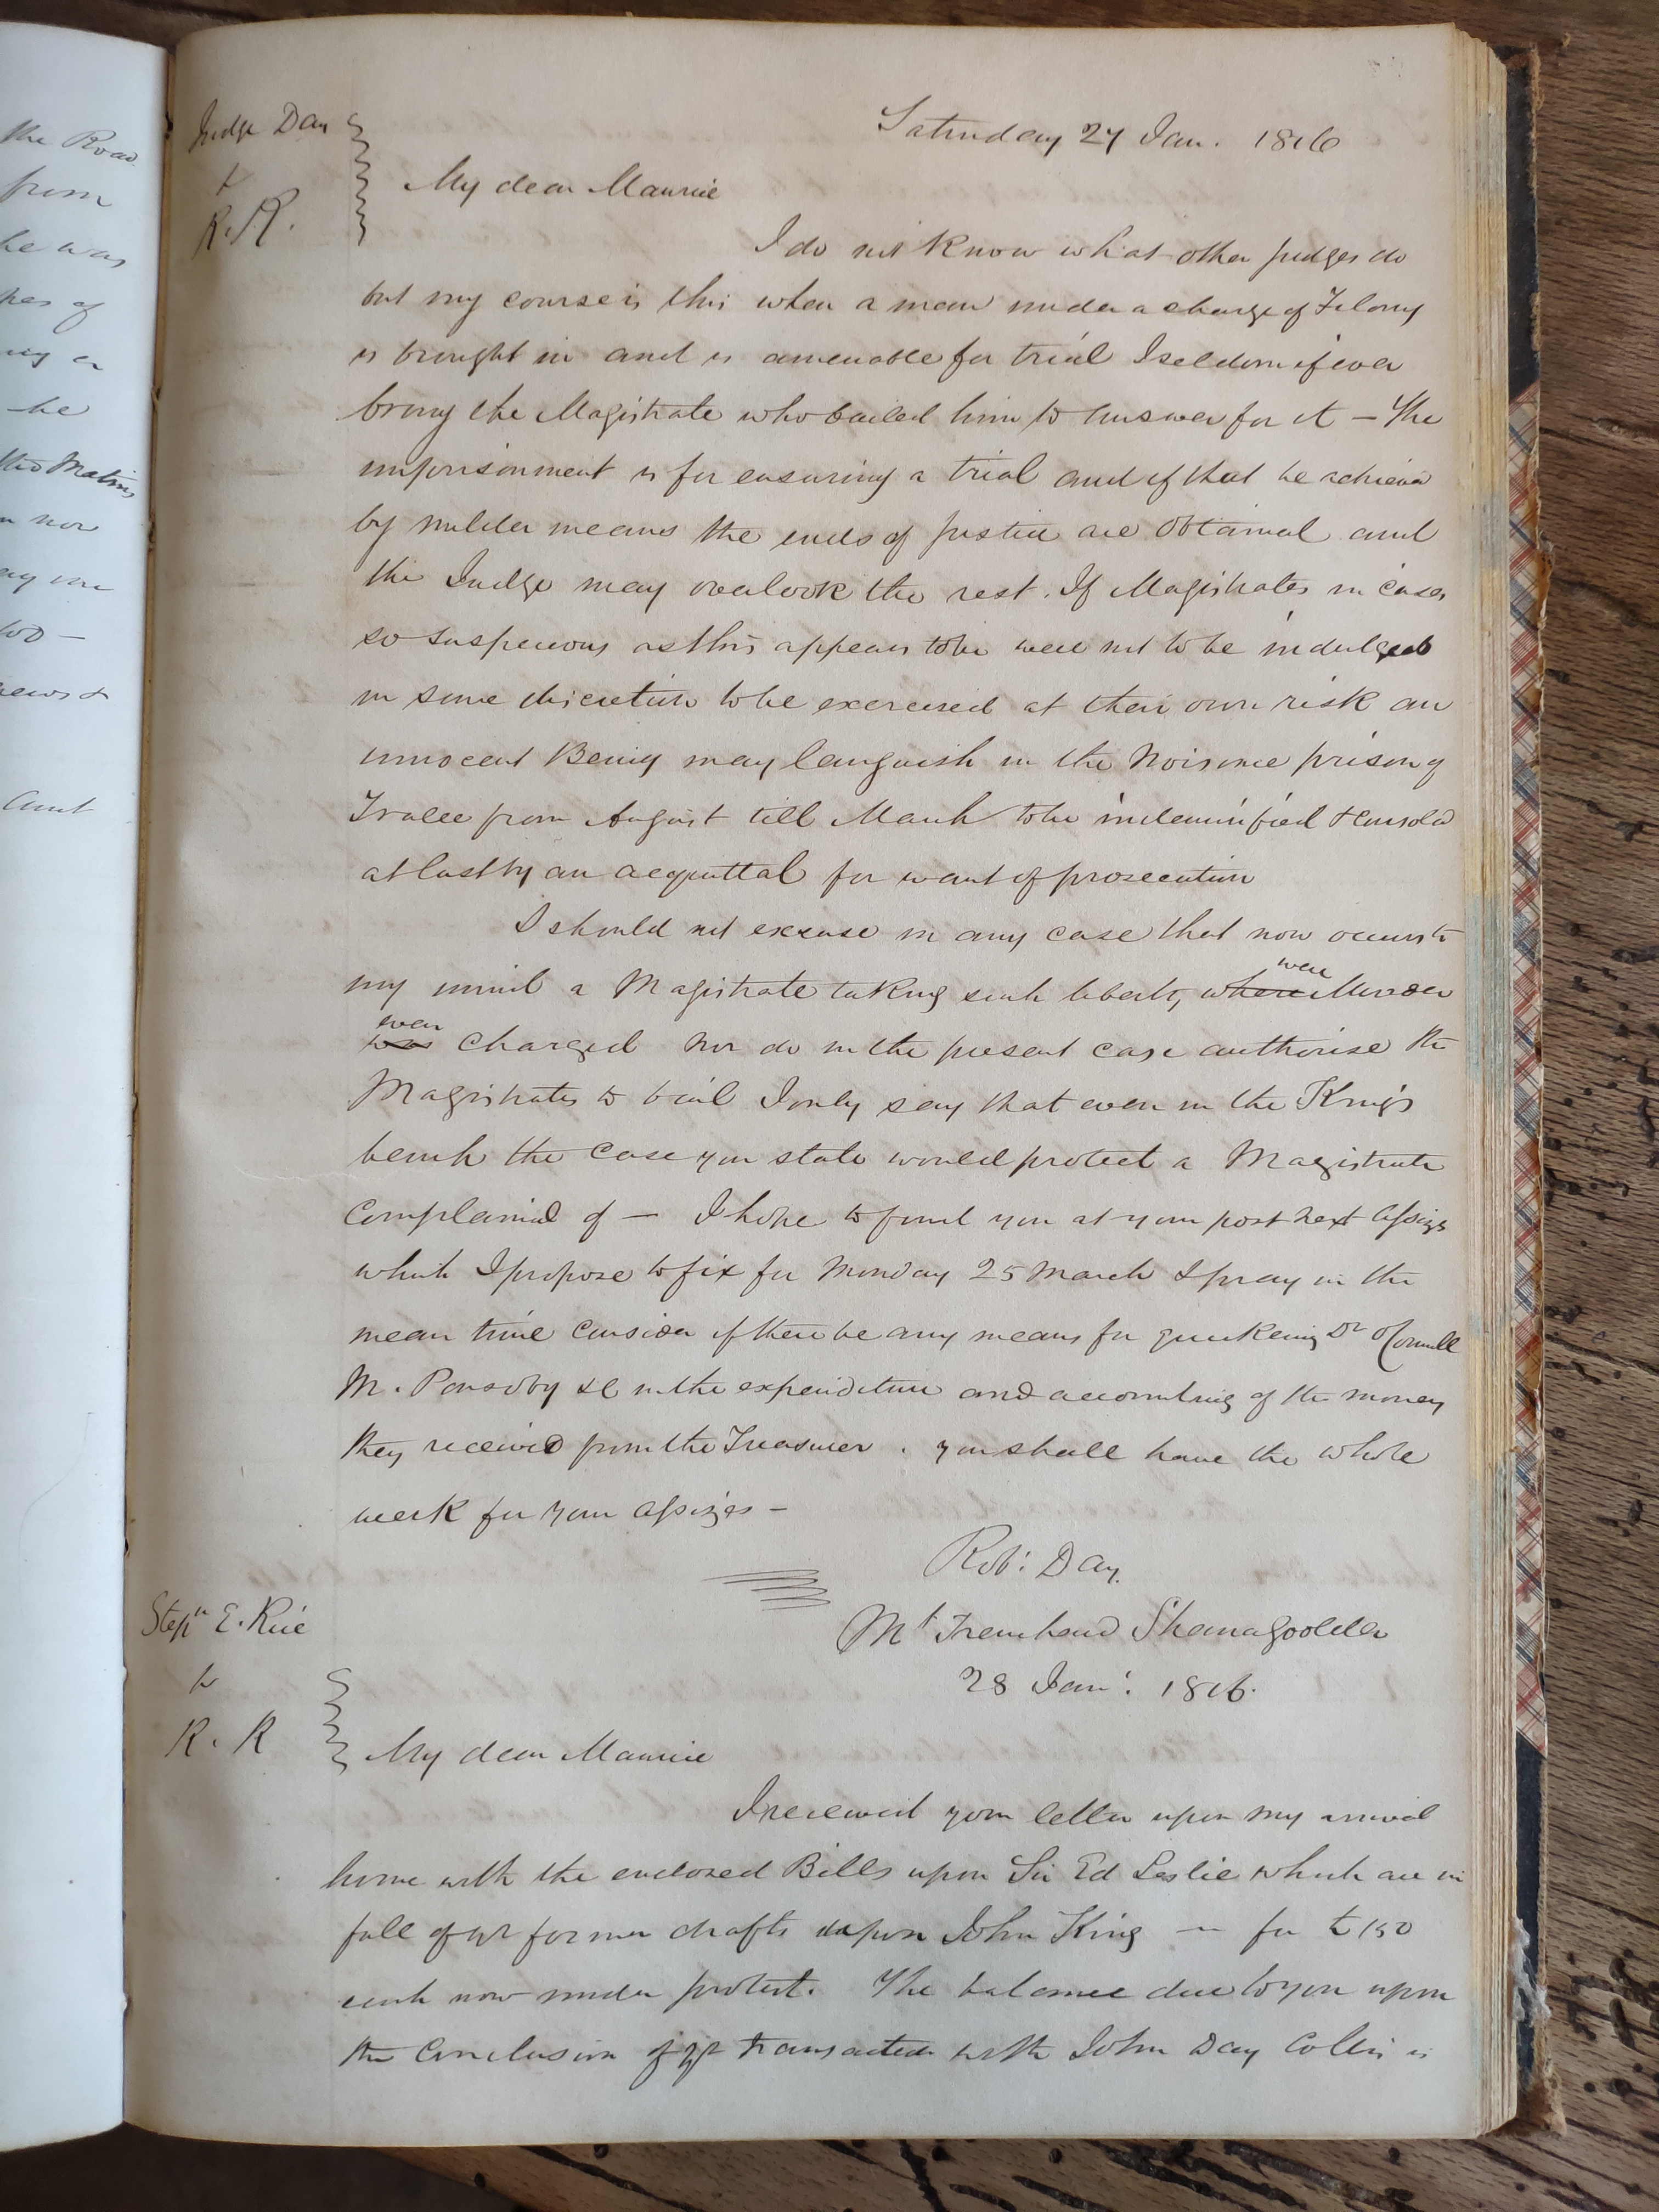 the Road
from
he was
pes of
ing or
he
the Matins
n nor
ay me
too —
news &
Aunt
Judge Day
to
R. R.
Saturday 27 Jan. 1816
My dear Maurice
I do not know what other judges do
but my course is this when a man under a charge of Felony
is brought in and is amenable for trial I seldom if ever
bring the Magistrate who bailed him to answer for it — The
imprisonment is for ensuring a trial and if that be achieved
by milder means the ends of justice are obtained and
the Judge may overlook the rest. If Magistrates in cases
so suspicious as this appears to be were not to be indulged
in some discretion to be exercised at their own risk an
innocent Being may languish in the Noisome prison of
Tralee from August till March to be indemnified & consoled
at last by an acquittal for want of prosecution
I should not excuse in any case that now occurs to
my mind a Magistrate taking such liberty, where were Murder
was even charged nor do in the present case authorise the
Magistrates to bail I only say that even in the Kings
bench the case you state would protect a Magistrate
complained of — I hope to find you at your post next Assizes
which I propose to fix for Monday 25 March I pray in the
mean time consider if there be any means for quickening Dr O'Connell
M. Ponsoby &c in the expenditure and accounting of the money
they received from the Treasurer. you shall have the whole
week for your assizes —
Robt: Day.
Stepn E. Rice
to
R. R
Mt Trenchard Shanagoolden
28 Jany: 1816.
My dear Maurice
I received your letter upon my arrival
home with the enclosed Bills upon Sir Ed Leslie which are in
full of yr former drafts upon John King — for £150
each now under protest. The balance due to you upon
the Conclusion of yr transaction with John Day Collis is